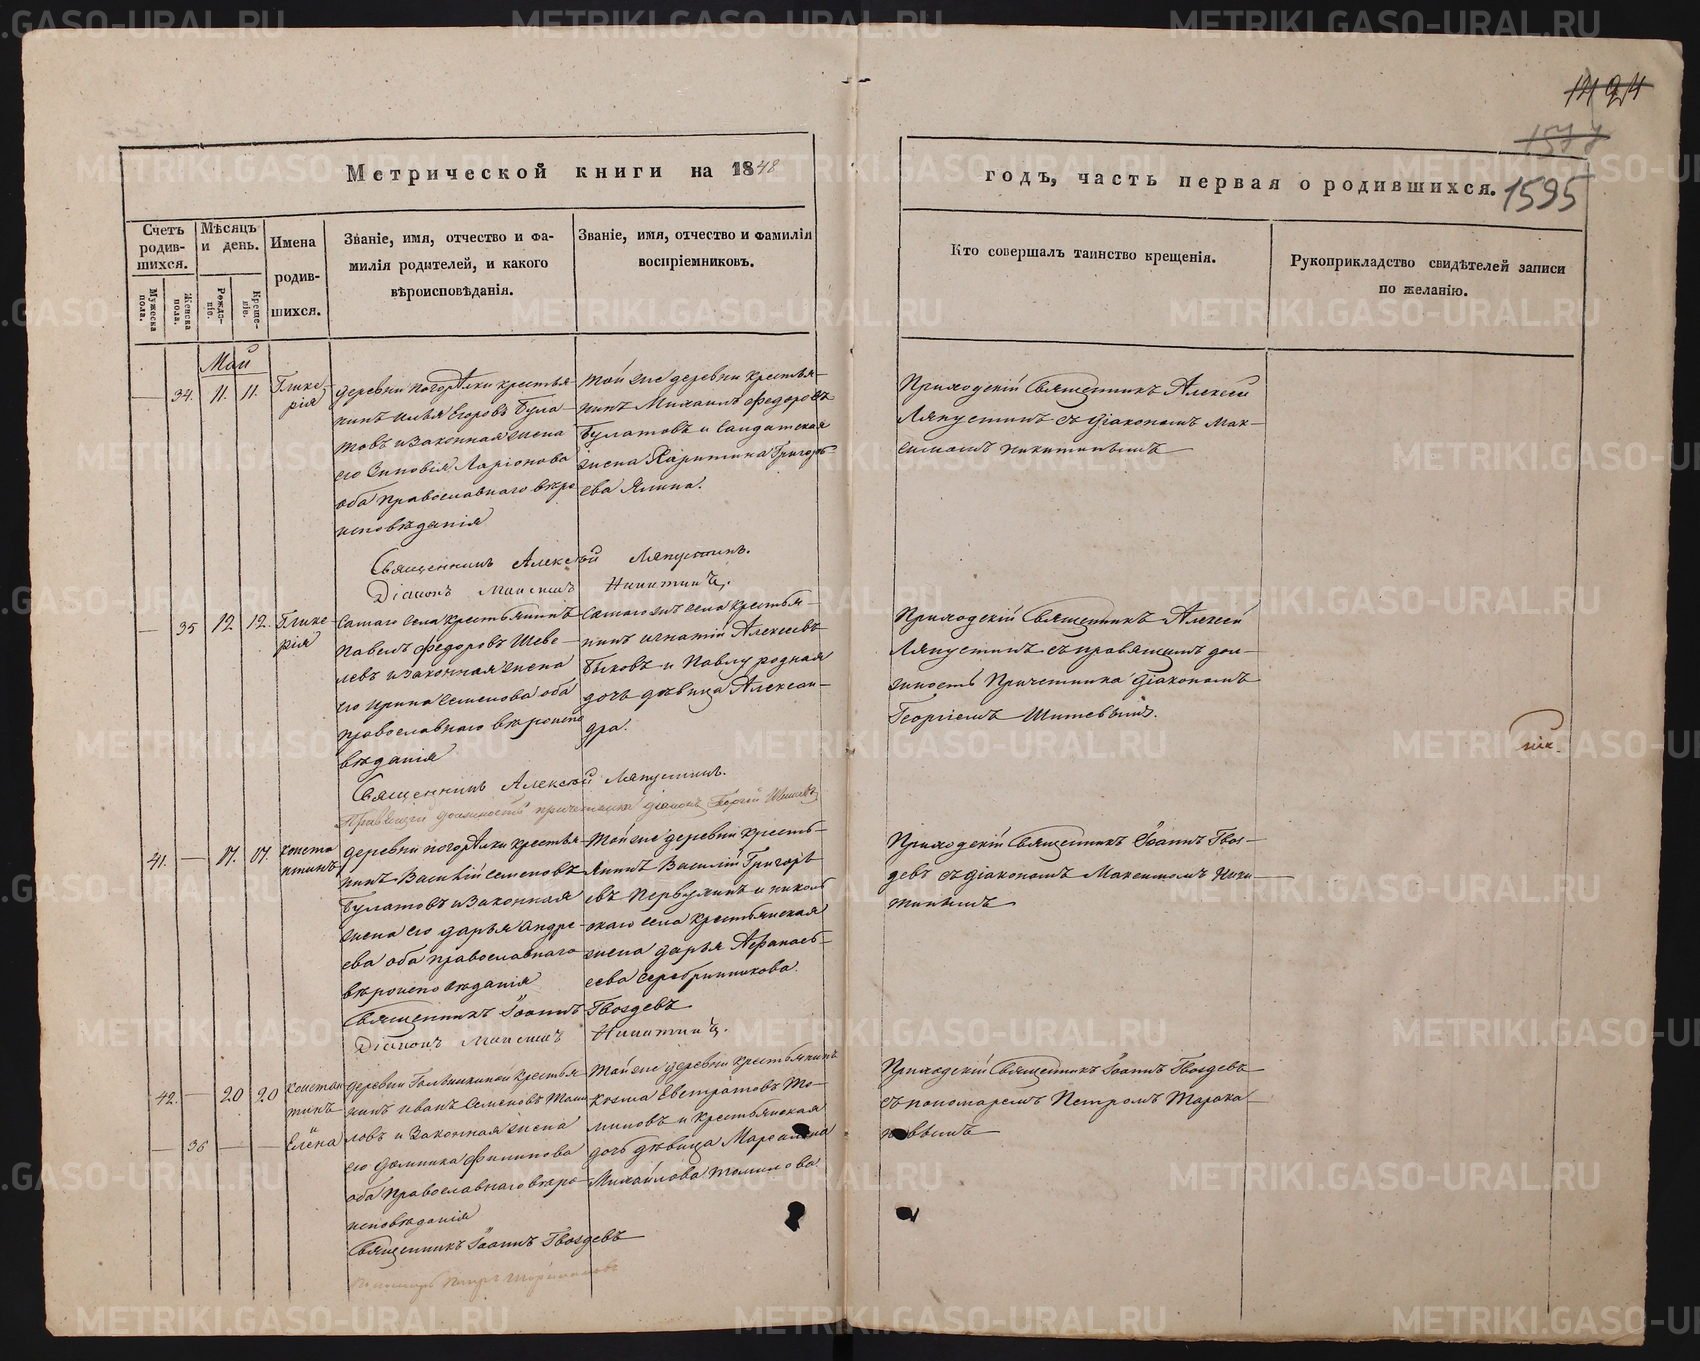 1494
1577
1595
Метрической книги на 1848
годъ, часть первая о родившихся.
Счетъ родившихся.
Мужеска пола.
Женска пола.
Мѣсяцъ и день.
Рожденіе.
Крещеніе.
Имена родившихся.
Званіе, имя, отчество и фамилія родителей, и какого вѣроисповѣданія.
Званіе, имя, отчество и фамилія воспріемниковъ.
Кто совершалъ таинство крещенія.
Рукоприкладство свидѣтелей записи по желанію.
Май
34. 11. 11. Глике
рія
деревни Погорѣлки крестья
нинъ Илья Егоровъ Була
товъ и законная жена
его Зиновія Ларіонова
оба православнаго вѣро
исповѣданія
той же деревни крестья
нинъ Михаилъ Федоровъ
Булатовъ и солдатская
жена Харитина Григорь
ева Ялина.
Приходскій Священникъ Алексей
Ляпустинъ съ діакономъ Мак
симомъ Никитинымъ
Священникъ Алексѣй Ляпустинъ.
Діаконъ Максимъ Никитинъ.
35 12 12. Глике
рія
Самаго села крестьянинъ
Павелъ Федоровъ Шеве
левъ и законная жена
его Ирина Семенова оба
православнаго вѣроиспо
вѣданія
Самаго жъ села крестья
нинъ Игнатій Алексеевъ
Быковъ и Павлу родная
дочь дѣвица Алексан
дра.
Приходскій Священникъ Алексей
Ляпустинъ съ правящимъ дол
жность Причетника діакономъ
Георгіемъ Шишевымъ.
Священникъ Алексѣй Ляпустинъ.
Правящій должность причетника діаконъ Георгій Шишевъ
41. 17. 17. Конста
нтинъ
деревни Погорѣлки крестья
нинъ Василій Семеновъ
Булатовъ и законная
жена его Дарья Андре
ева оба православнаго
вѣроисповѣданія
Той же деревни кресть
янинъ Василій Григорь
евъ Первухинъ и Николь
скаго села крестьянская
жена Дарья Афанась
ева Серебрянникова.
Приходскій Священникъ Іоаннъ Гвоз
девъ съ діакономъ Максимомъ Ники
тинымъ
Священникъ Іоаннъ Гвоздевъ
Діаконъ Максимъ Никитинъ.
42. 20 20 Констан
тинъ
36 Елена
деревни крестья
нинъ Иванъ Семеновъ Томи
ловъ и законная жена
его Домника Филипова
оба православнаго вѣро
исповѣданія
Той же деревни крестьянинъ
Козма Евстратовъ То
миловъ и крестьянская
дочь дѣвица Мареміяна
Михайлова Томилова
Приходскій Священникъ Іоаннъ Гвоздевъ
съ пономаремъ Петромъ Тарака
новымъ
Священникъ Іоаннъ Гвоздевъ
Пономарь Петръ
METRIKI.GASO-URAL.RU